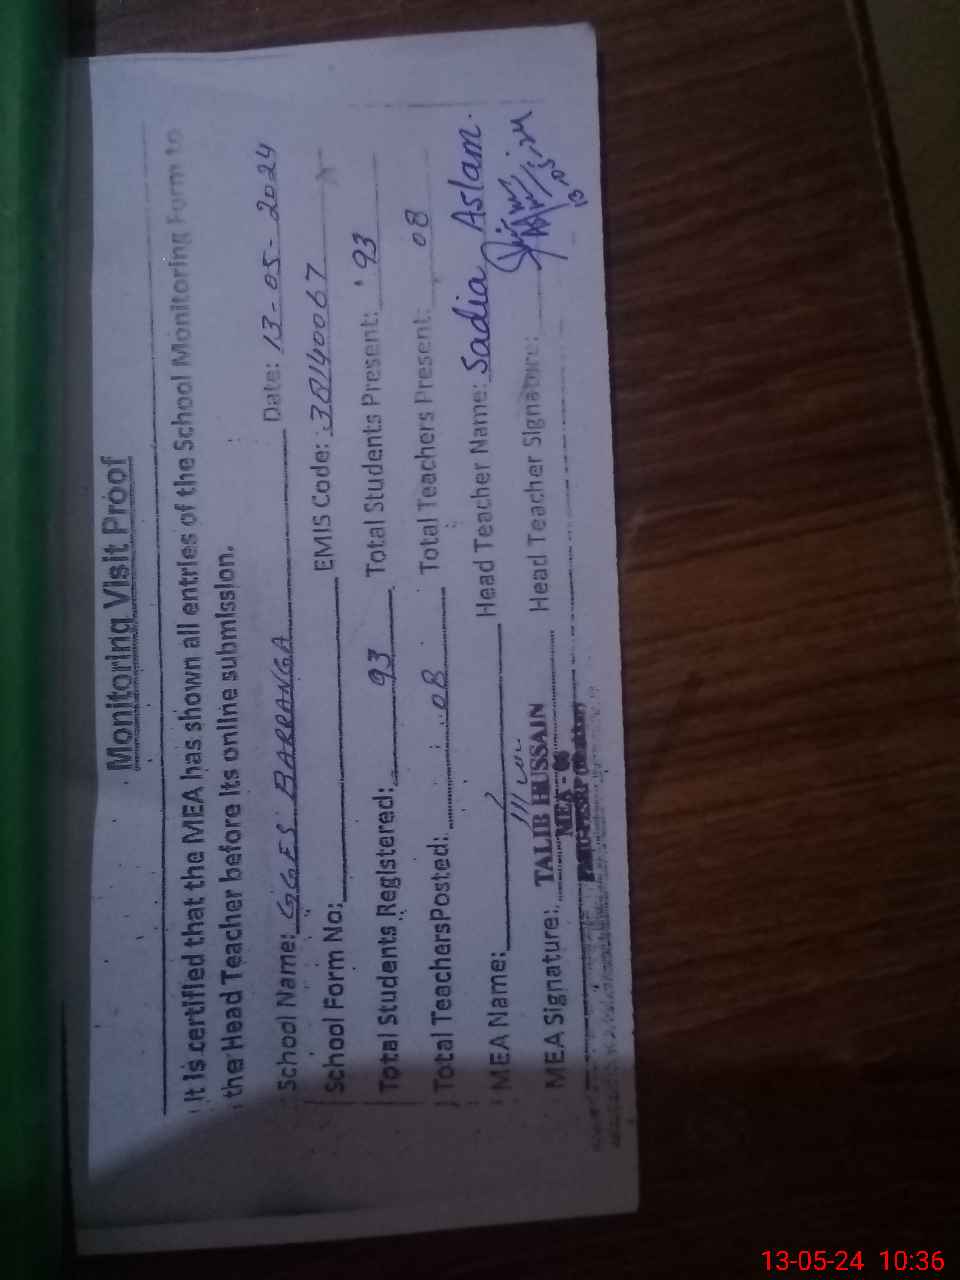 Monitoring Visit Proof
It is certified that the MEA has shown all entries of the School Monitoring Form to
the Head Teacher before its online submission.
School Name: GGES BARRANGA Date: 13-05-2024
School Form No: EMIS Code: 38140067
Total Students Registered: 93 Total Students Present: 93
Total Teachers Posted: 08 Total Teachers Present: 08
MEA Name: Head Teacher Name: Sadia Aslam.
MEA Signature: TALIB HUSSAIN Head Teacher Signature:
MEA - 13.05.24
13-05-24 10:36